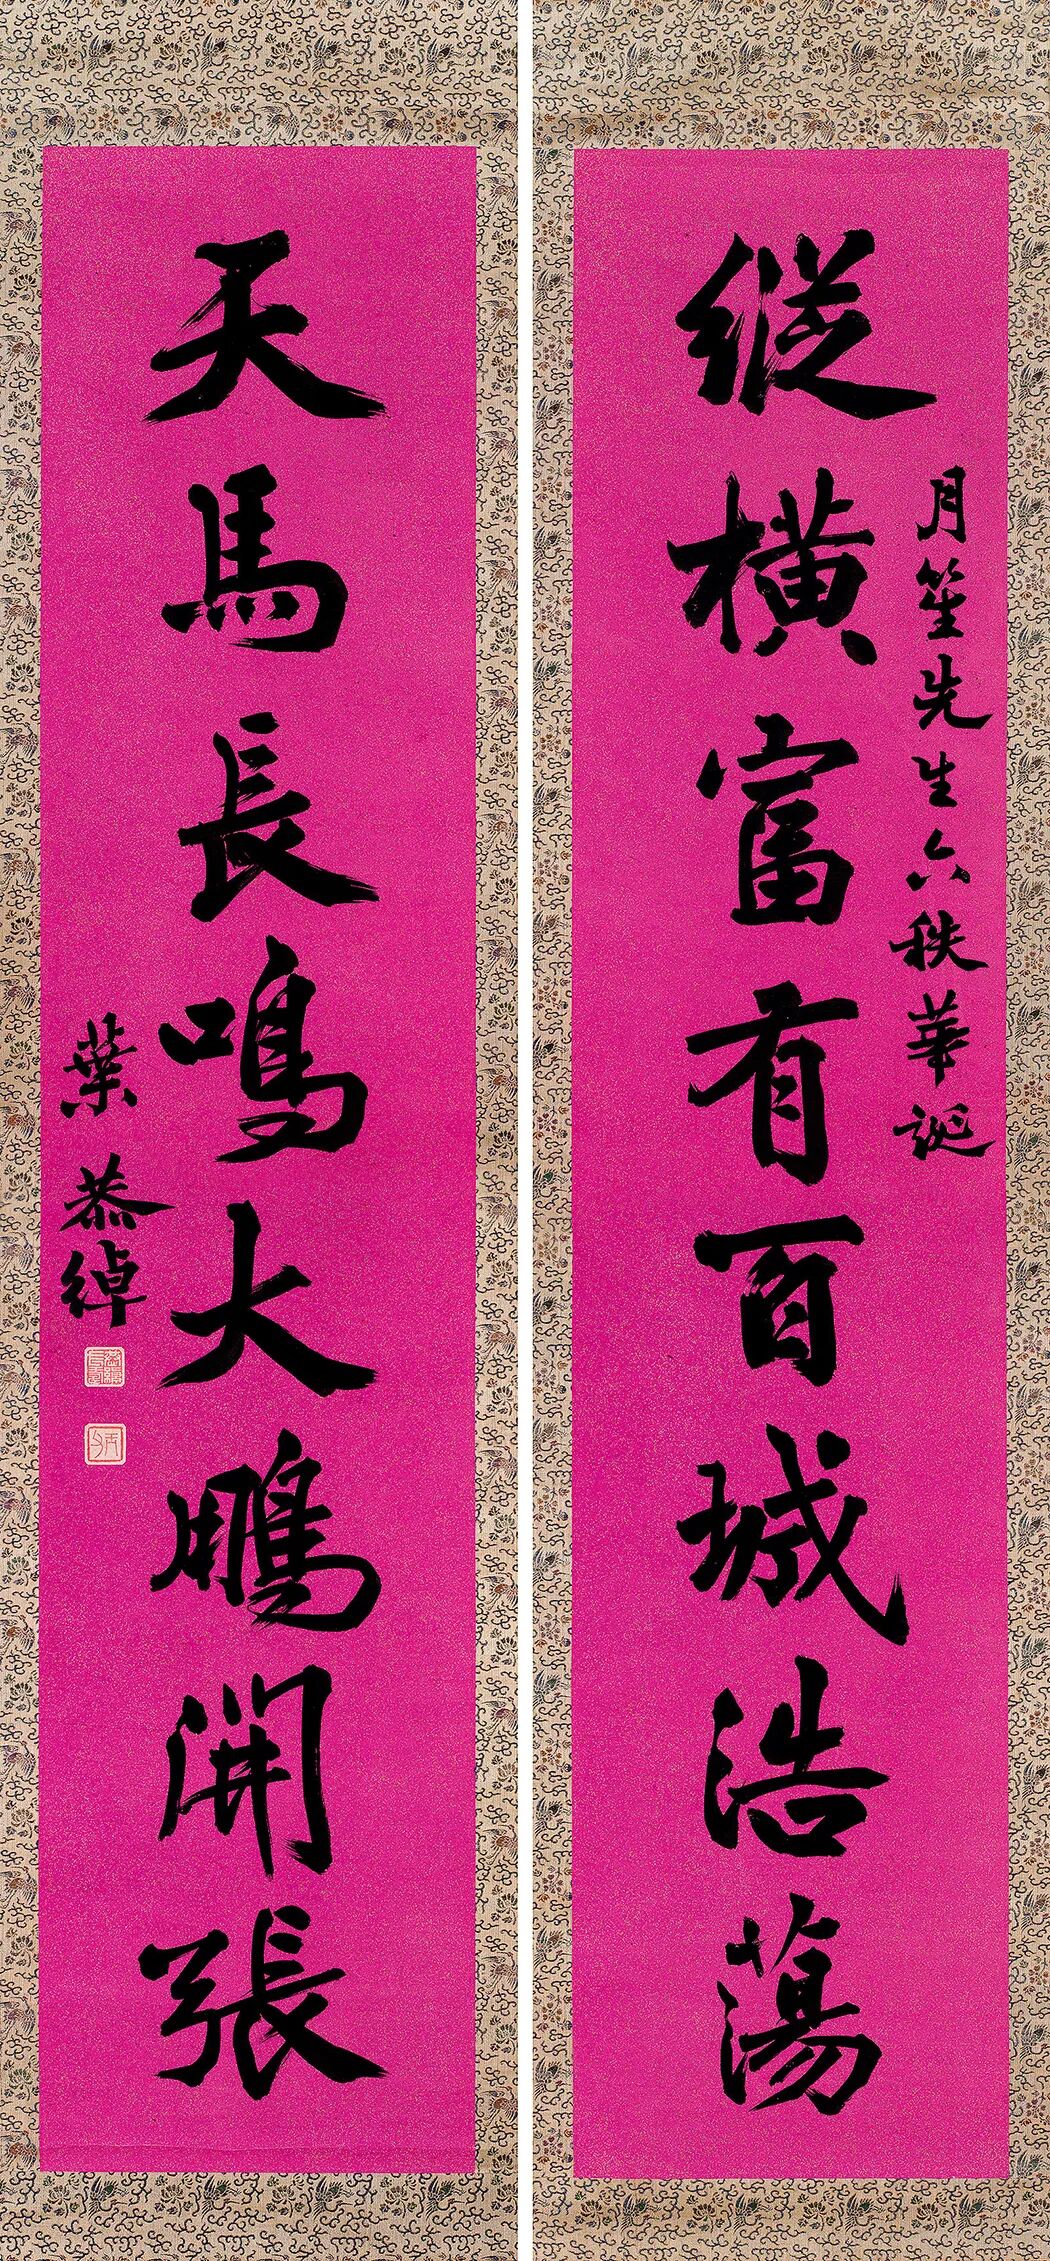 縱橫富有百城浩蕩
月笙先生六秩華誕
天馬長鳴大鵬開張
葉恭綽